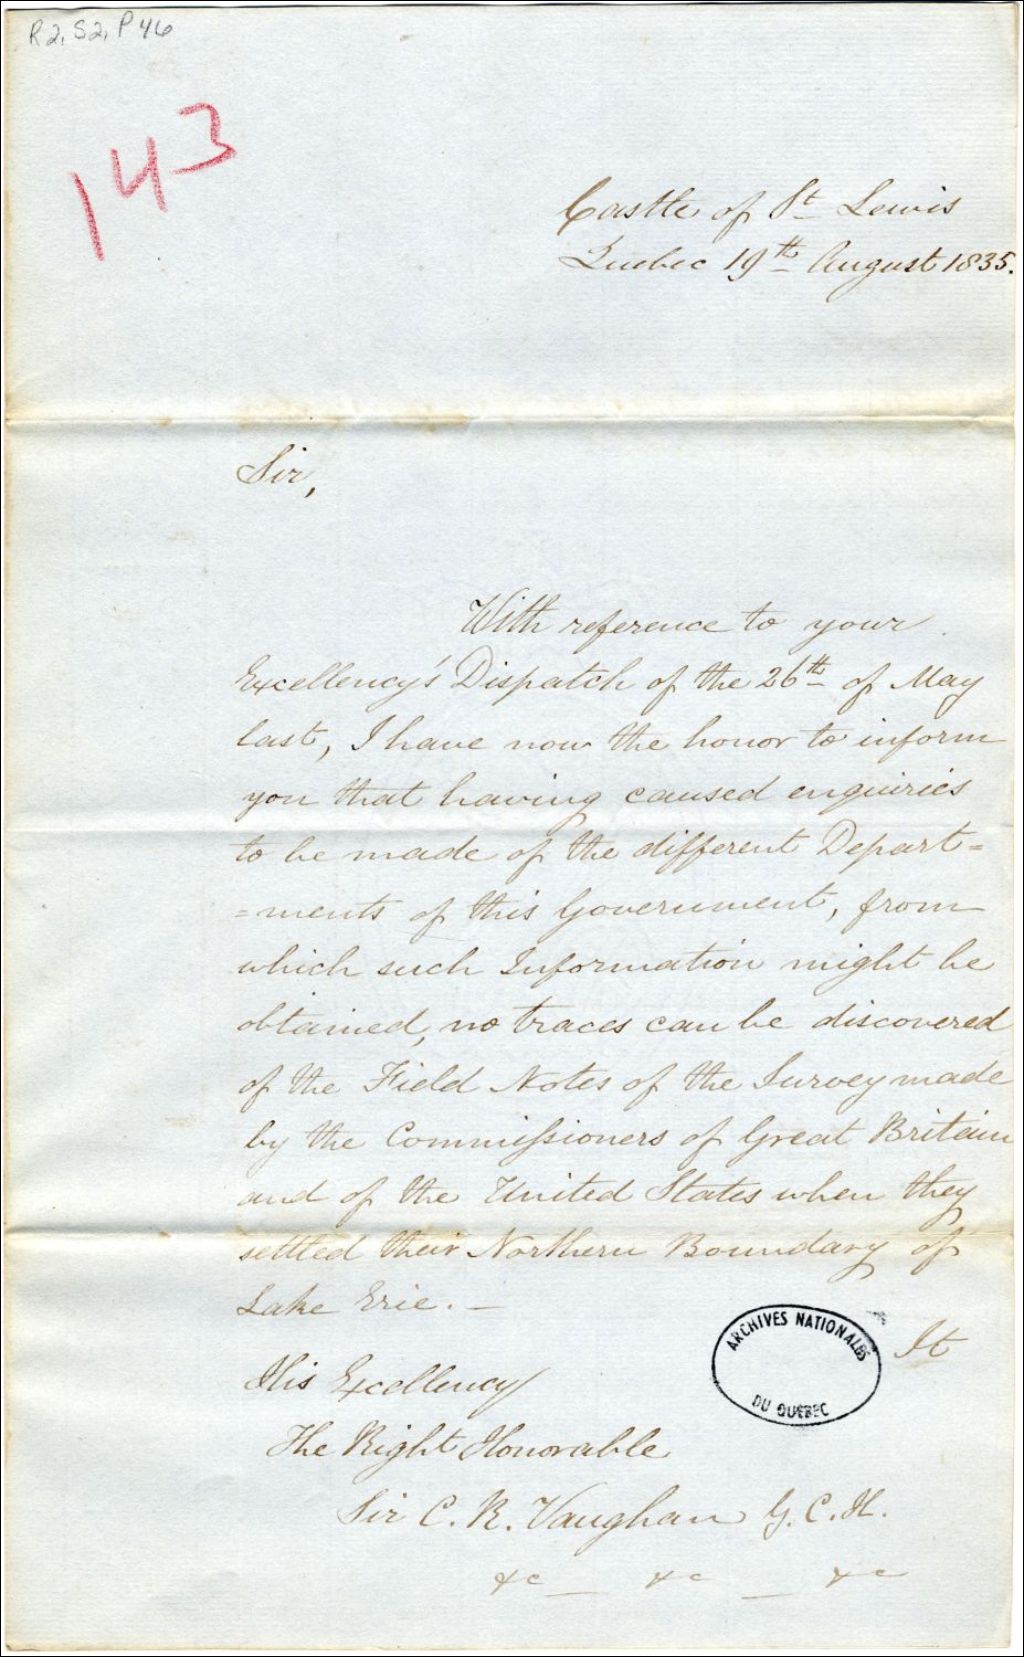 R2, S2, P46
143
Castle of St Lewis
Quebec 19th August 1835.
Sir,
With reference to your
Excellency's Dispatch of the 26th of May
last, I have now the honor to inform
you that having caused enquiries
to be made of the different Depart=
=ments of this Government, from
which such Information might be
obtained, no traces can be discovered
of the Field Notes of the Survey made
by the Commissioners of Great Britain
and of the United States when they
settled their Northern Boundary of
Lake Erie. —
ARCHIVES NATIONALES
DU QUÉBEC
It
His Excellency
The Right Honorable
Sir C. R. Vaughan G.C.H.
&c — &c — &c